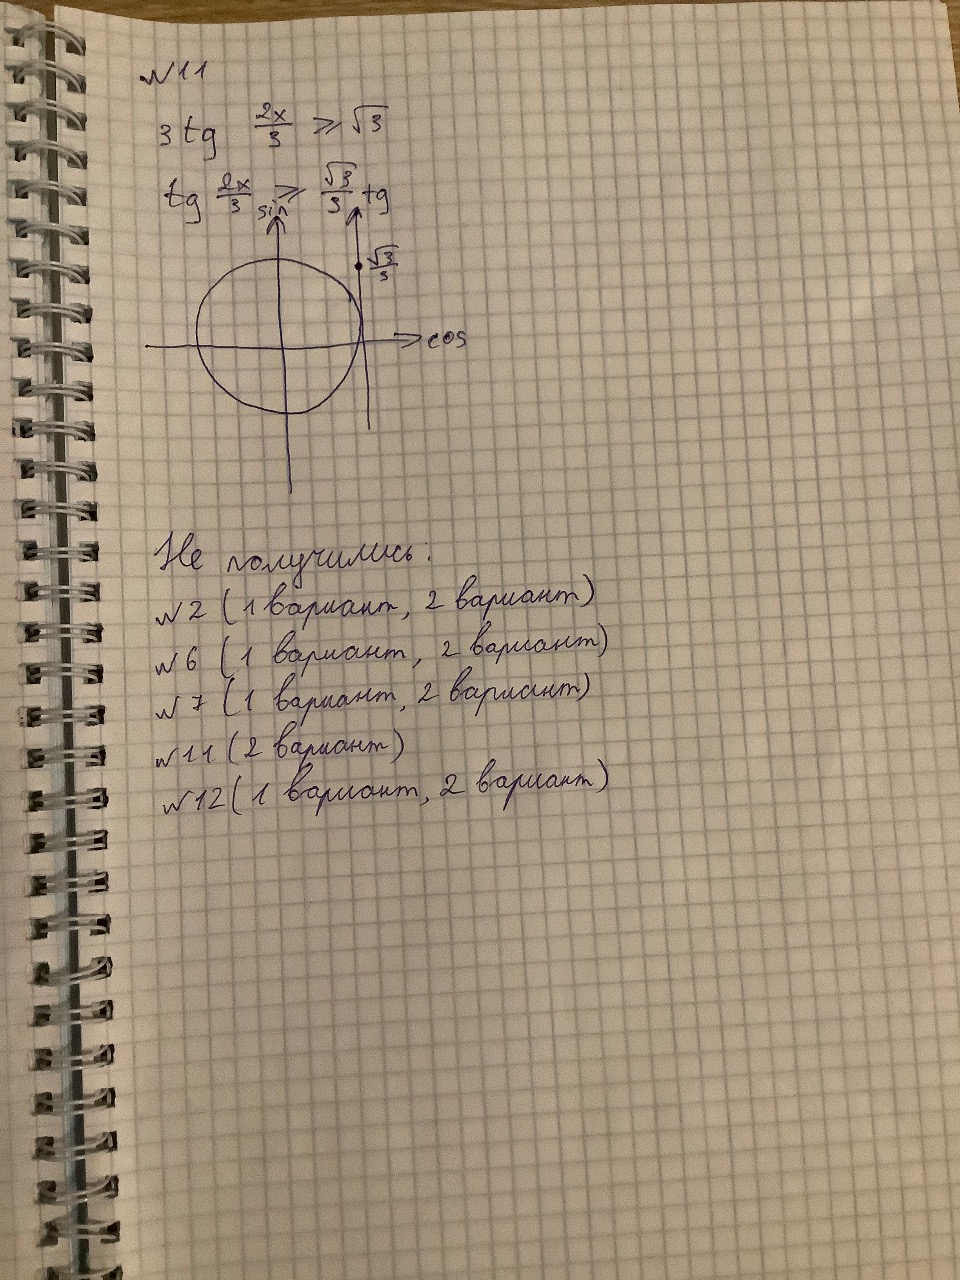 №11
3 tg 2x/3 ≥ √3
tg 2x/3 ≥ √3/3
sin
tg
√3/3
cos
Не получились:
№2 (1 вариант, 2 вариант)
№6 (1 вариант, 2 вариант)
№7 (1 вариант, 2 вариант)
№11 (2 вариант)
№12 (1 вариант, 2 вариант)